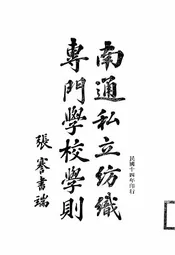 民國十四年印行
南通私立紡織
專門學校學則
張謇書端